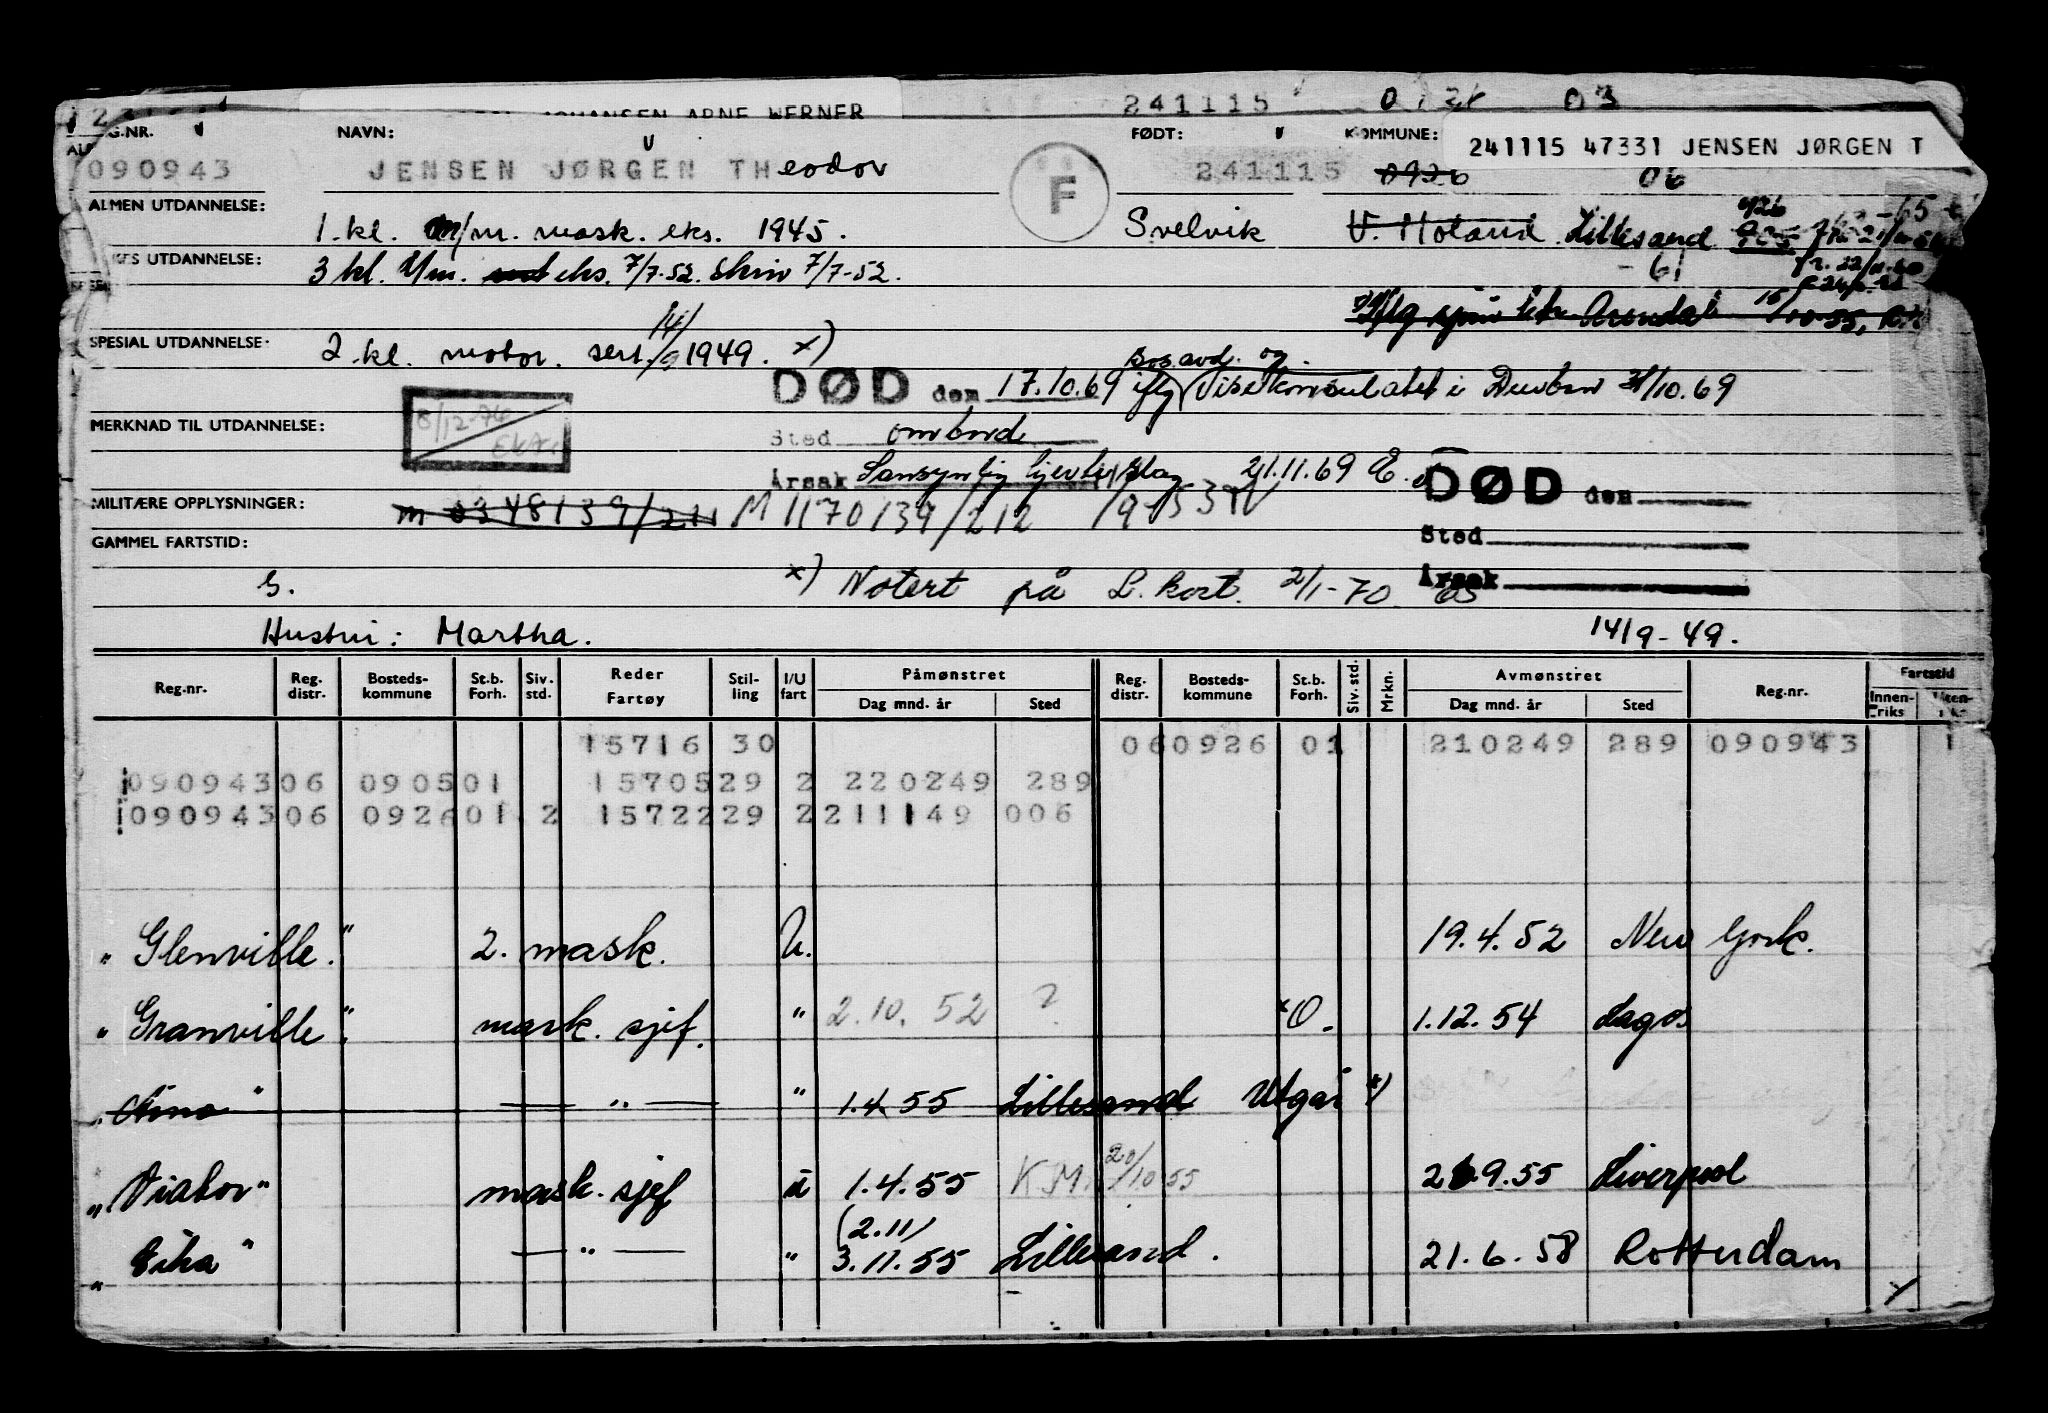 JOHANSEN ARNE WERNER 241115 03
G.NR. NAVN: FØDT: KOMMUNE: 241115 47331 JENSEN JØRGEN T
090943 JENSEN JØRGEN THeodor F 241115 0926 06
ALMEN UTDANNELSE: 1. kl. m/m. mask. eks. 1945. Svelvik V. Moland Lillesand
UTDANNELSE: 3 kl. eks. 7/7-52. Skriv 7/7-52. - 61
Arendal
SPESIAL UTDANNELSE: 2. kl. motor. sert. 14/9 1949. x)
DØD den 17.10.69 iflg Sos. avd. og Visekonsulatet i Durban /10.69
8/12-74
MERKNAD TIL UTDANNELSE: Sted ombord
Årsak Sansynlig hjerteslag 21.11.69 E. DØD den
MILITÆRE OPPLYSNINGER: m 0348139/211 M 1170139/212
GAMMEL FARTSTID: Sted
S. x) Notert på L. kort. 2/1-70. Årsak
Hustru: Martha. 14/9-49.
Reg.nr. Reg. distr. Bosteds-kommune St.b. Forh. Siv. std. Reder Fartøy Stil-ling I/U fart Påmønstret Dag mnd. år Sted Reg. distr. Bosteds-kommune St.b. Forh. Siv. std. Mrkn. Avmønstret Dag mnd. år Sted Reg.nr. Fartstid Innen-riks
15716 30 06 0926 01 210249 289 090943 1
090943 06 0905 01 15705 29 2 220249 289
090943 06 0926 01 2 15722 29 2 211149 006
" Glenville. " 2. mask. U. 19.4.52 New York.
" Granville " mask. sjef. " 2.10.52 ? O. 1.12.54 Lagos
— " — " 1.4.55 Lillesand Utgår x)
" Viator " mask. sjef u 1.4.55 K.M. 20/10 55 9.55 Liverpool
(2.11)
" — " — " 3.11.55 Lillesand. 21.6.58 Rotterdam